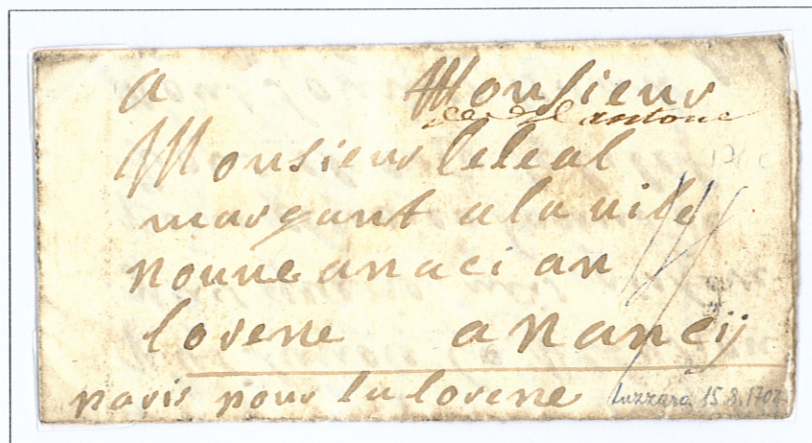 a Monsieur
Monsieur leleal
margant a la uile
nouue anaci an
lorene a nancij
paris pour la lorene
Luzzara 15.8.1702